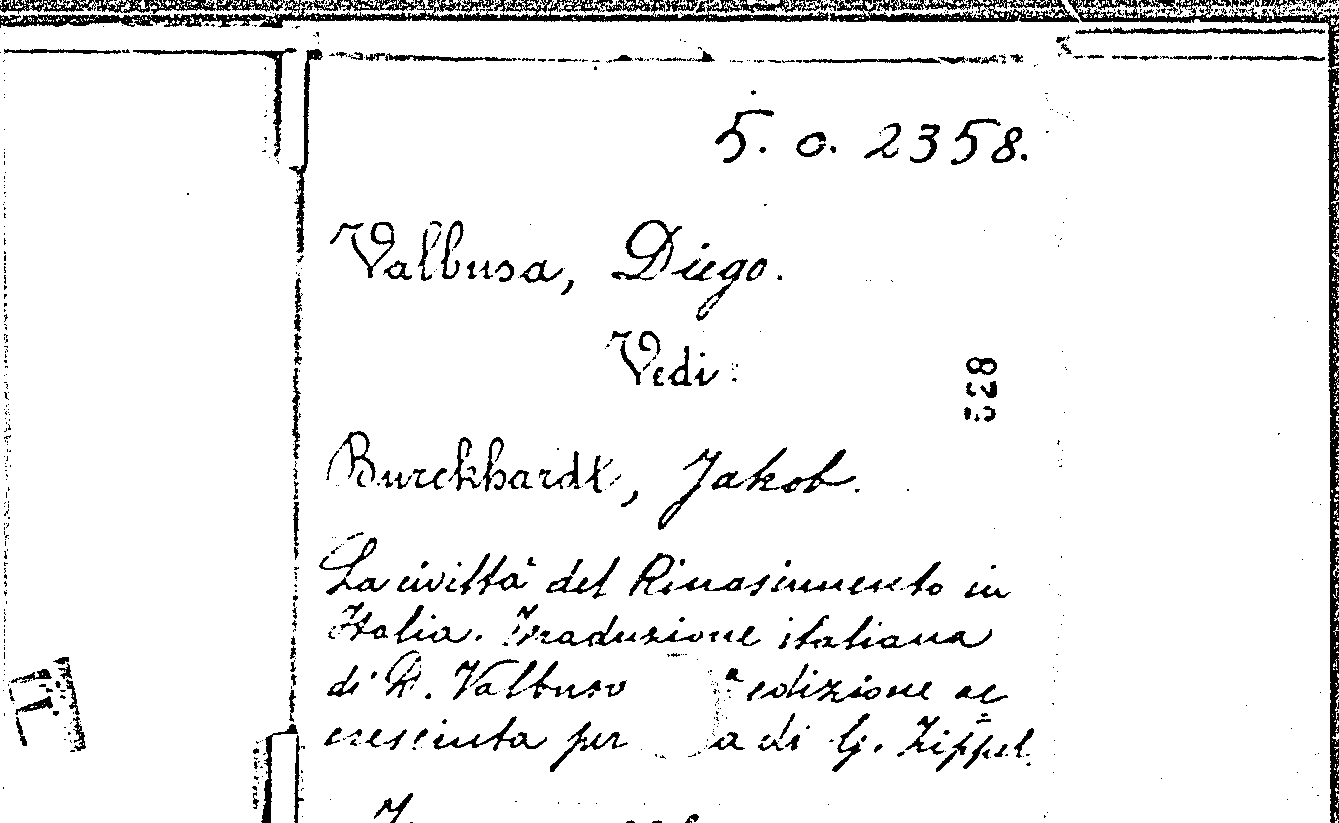 5. o. 2358.
Valbusa, Diego.
Vedi:
528
Burckhardt, Jakob.
La civiltà del Rinascimento in
Italia. Traduzione italiana
di D. Valbusa edizione ac
cresciuta per a di G. Zippel.